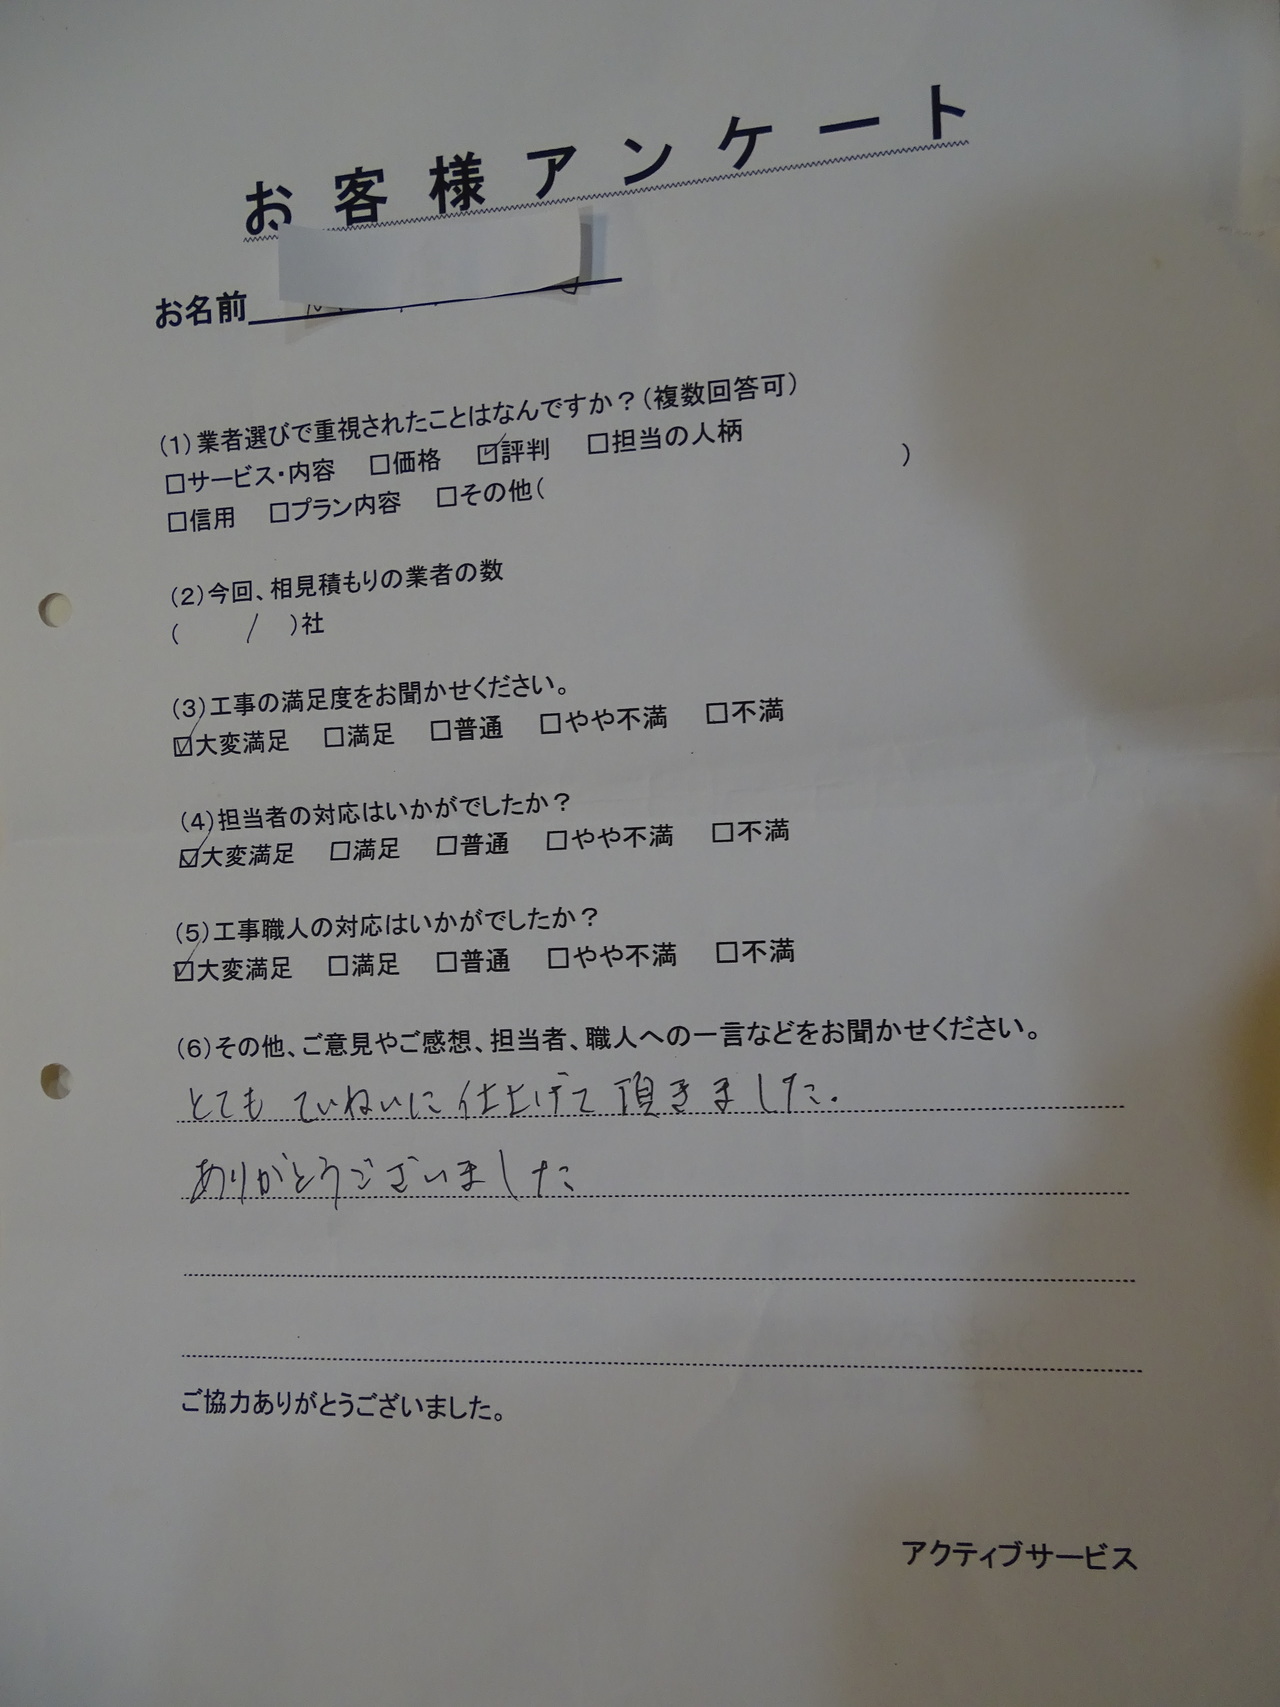 お客様アンケート
お名前
(1)業者選びで重視されたことはなんですか？(複数回答可)
□サービス・内容 □価格 ☑評判 □担当の人柄
□信用 □プラン内容 □その他( )
(2)今回、相見積もりの業者の数
( / )社
(3)工事の満足度をお聞かせください。
☑大変満足 □満足 □普通 □やや不満 □不満
(4)担当者の対応はいかがでしたか？
☑大変満足 □満足 □普通 □やや不満 □不満
(5)工事職人の対応はいかがでしたか？
☑大変満足 □満足 □普通 □やや不満 □不満
(6)その他、ご意見やご感想、担当者、職人への一言などをお聞かせください。
とても ていねいに 仕上げて 頂きました.
ありがとうございました
ご協力ありがとうございました。
アクティブサービス